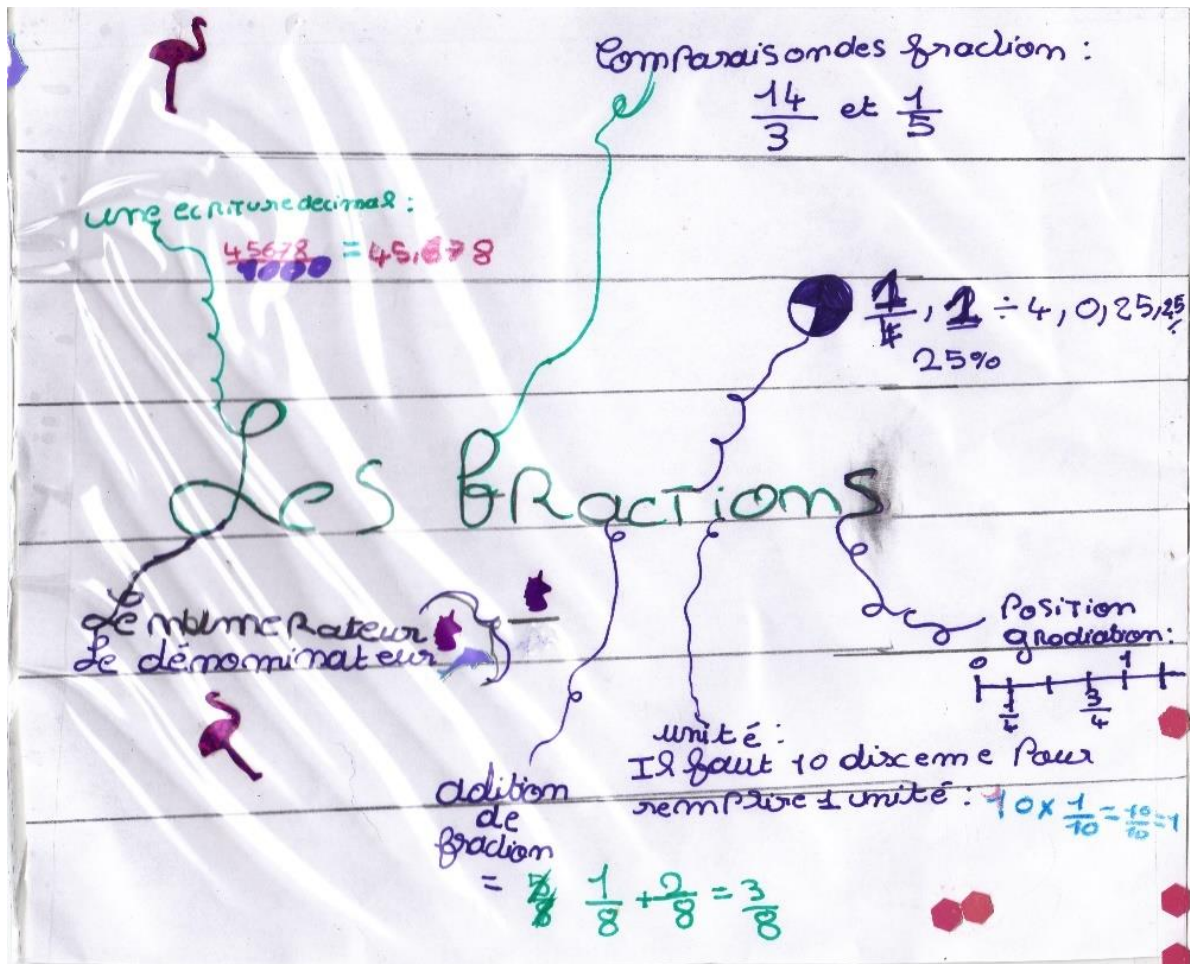 Comparaison des fraction :
14/3 et 1/5
une ecriture decimal :
45678/1000 = 45,678
1/4, 1 ÷ 4, 0,25,
25%
Les fractions
Le numerateur
Le dénominateur
Position
gradiation :
0 1
1/4 3/4
unité :
Il faut 10 disceme Pour
remplire 1 unité : 10 x 1/10 = 10/10 = 1
adition
de
fraction
= 1/8 + 2/8 = 3/8